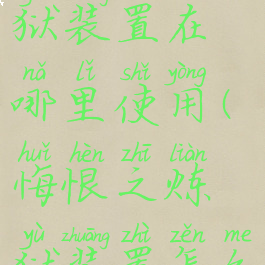 狱装置在
nǎ lǐ shǐ yòng
哪里使用(
huǐ hèn zhī liàn
悔恨之炼
yù zhuāng zhì zěn me
狱装置怎么